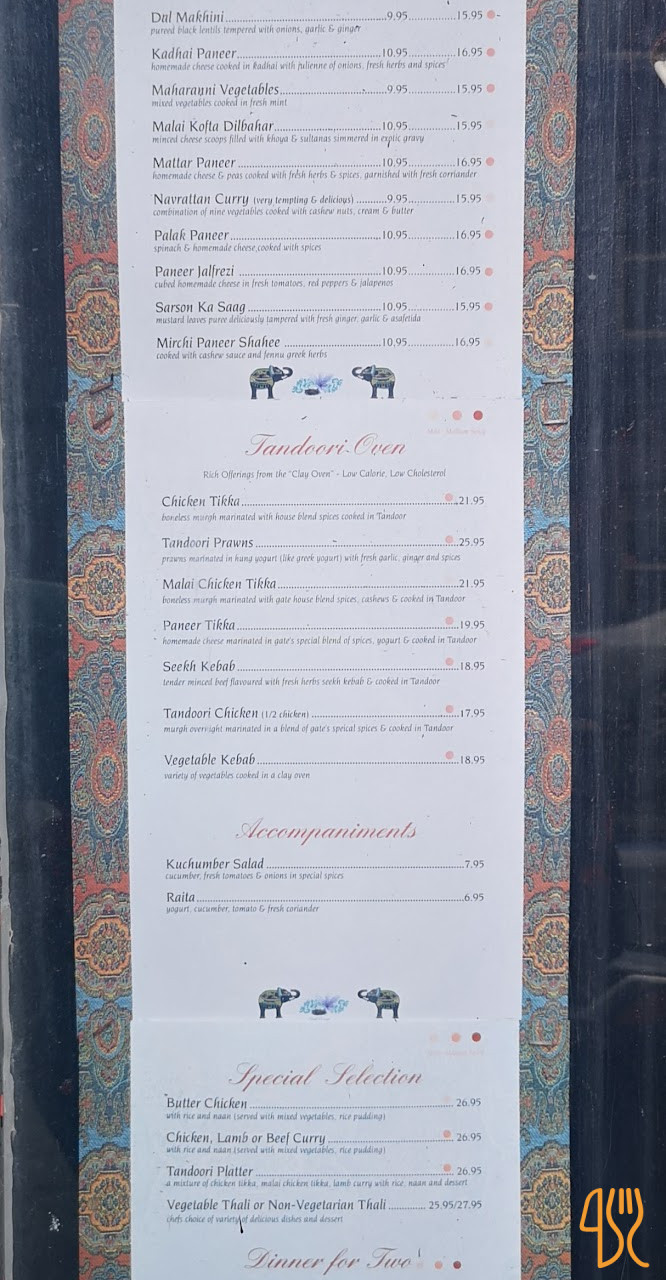 Dal Makhini 9.95 15.95
pureed black lentils tempered with onions, garlic & ginger
Kadhai Paneer 10.95 16.95
homemade cheese cooked in kadhai with julienne of onions, fresh herbs and spices
Maharanni Vegetables 9.95 15.95
mixed vegetables cooked in fresh mint
Malai Kofta Dilbahar 10.95 15.95
minced cheese scoops filled with khoya & sultanas simmered in exotic gravy
Mattar Paneer 10.95 16.95
homemade cheese & peas cooked with fresh herbs & spices, garnished with fresh corriander
Navrattan Curry (very tempting & delicious) 9.95 15.95
combination of nine vegetables cooked with cashew nuts, cream & butter
Palak Paneer 10.95 16.95
spinach & homemade cheese cooked with spices
Paneer Jalfrezi 10.95 16.95
cubed homemade cheese in fresh tomatoes, red peppers & jalapenos
Sarson Ka Saag 10.95 15.95
mustard leaves puree deliciously tampered with fresh ginger, garlic & asafetida
Mirchi Paneer Shahee 10.95 16.95
cooked with cashew sauce and fennu greek herbs
Mild Medium Spicy
Tandoori Oven
Rich Offerings from the "Clay Oven" - Low Calorie, Low Cholesterol
Chicken Tikka 21.95
boneless murgh marinated with house blend spices cooked in Tandoor
Tandoori Prawns 25.95
prawns marinated in hung yogurt (like greek yogurt) with fresh garlic, ginger and spices
Malai Chicken Tikka 21.95
boneless murgh marinated with gate house blend spices, cashews & cooked in Tandoor
Paneer Tikka 19.95
homemade cheese marinated in gate's special blend of spices, yogurt & cooked in Tandoor
Seekh Kebab 18.95
tender minced beef flavoured with fresh herbs seekh kebab & cooked in Tandoor
Tandoori Chicken (1/2 chicken) 17.95
murgh overnight marinated in a blend of gate's speical spices & cooked in Tandoor
Vegetable Kebab 18.95
variety of vegetables cooked in a clay oven
Accompaniments
Kuchumber Salad 7.95
cucumber, fresh tomatoes & onions in special spices
Raita 6.95
yogurt, cucumber, tomato & fresh coriander
Special Selection
Butter Chicken 26.95
with rice and naan (served with mixed vegetables, rice pudding)
Chicken, Lamb or Beef Curry 26.95
with rice and naan (served with mixed vegetables, rice pudding)
Tandoori Platter 26.95
a mixture of chicken tikka, malai chicken tikka, lamb curry with rice, naan and dessert
Vegetable Thali or Non-Vegetarian Thali 25.95/27.95
chefs choice of variety of delicious dishes and dessert
Dinner for Two